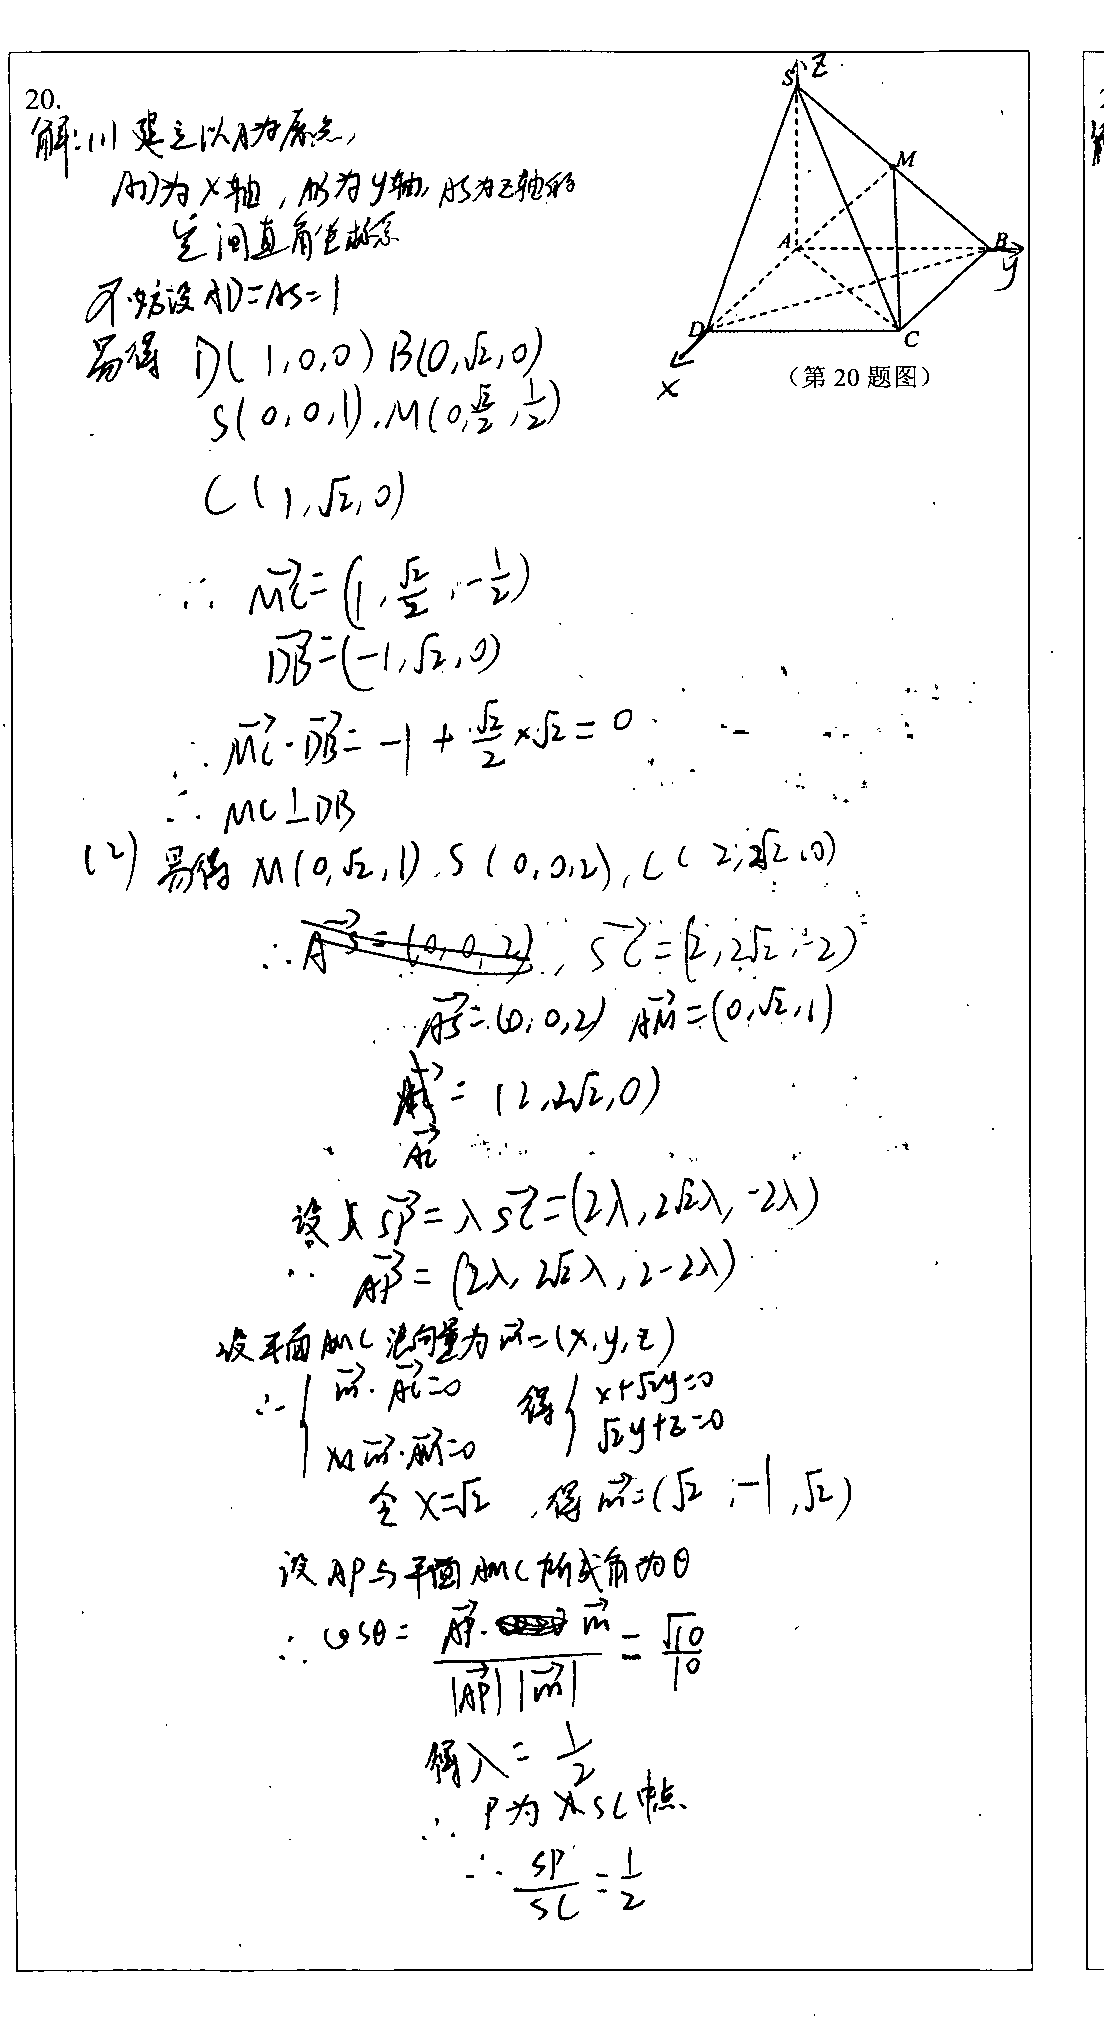 20.
解:(1) 建立以A为原点,
AD为x轴, AB为y轴, AS为z轴的
空间直角坐标系
不妨设AD=AS=1
易得 D(1,0,0) B(0,√2,0)
S(0,0,1), M(0,√2/2,1/2)
C(1,√2,0)
∴ MC→=(1,√2/2,-1/2)
DB→=(-1,√2,0)
∴ MC→·DB→=-1+√2/2×√2=0
∴ MC⊥DB
(2) 易得 M(0,√2,1), S(0,0,2), C(2,2√2,0)
∴ AS→=(0,0,2), SC→=(2,2√2,-2)
AS→=(0,0,2) AM→=(0,√2,1)
= (2,2√2,0)
AC→
设 SP→=λSC→=(2λ,2√2λ,-2λ)
∴ AP→=(2λ,2√2λ,2-2λ)
设平面AMC法向量为m→=(x,y,z)
∴ { m→·AC→=0 得 { x+√2y=0
m→·AM→=0 √2y+z=0
令x=√2, 得m→=(√2,-1,√2)
设AP与平面AMC所成角为θ
∴ cosθ= AP→·m→/|AP→||m→| = √10/10
得λ=1/2
∴ P为SC中点
∴ SP/SC=1/2
S Z
M
A B
y
D C
x
(第 20 题图)